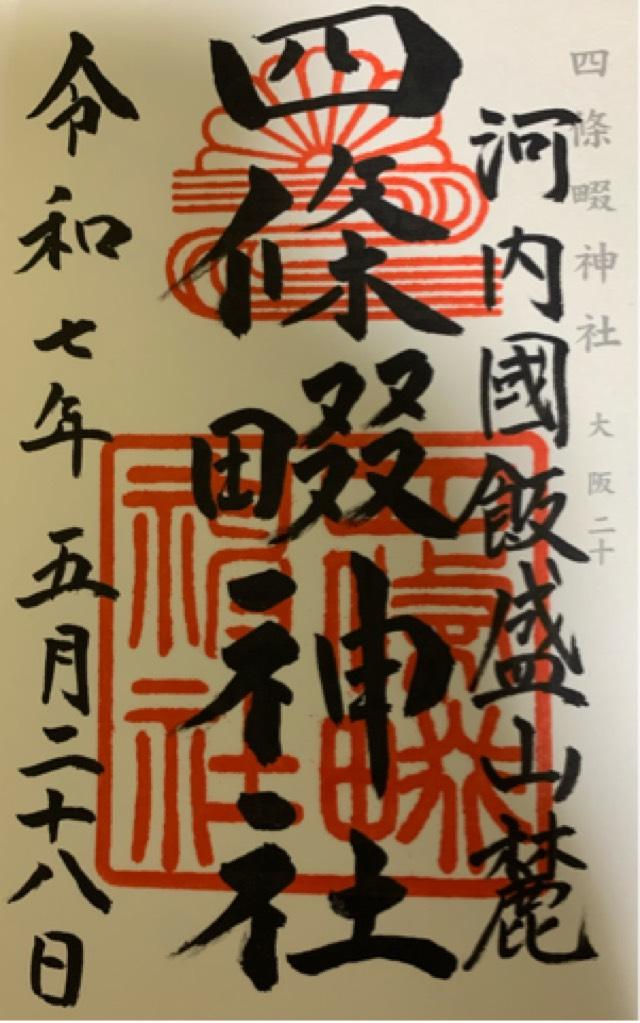 四條畷神社 大阪二十
河内國飯盛山麓
四條畷神社
令和七年五月二十八日